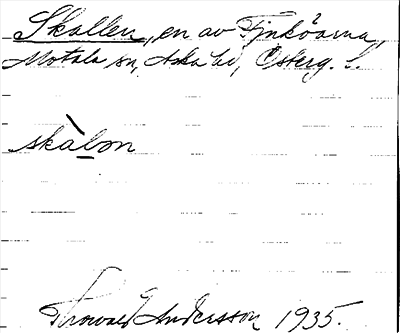 Skallen, en av Fjuköarna,
Motala sn, Aska hd, Österg. l.
skàlon
Thorvald Andersson 1935.